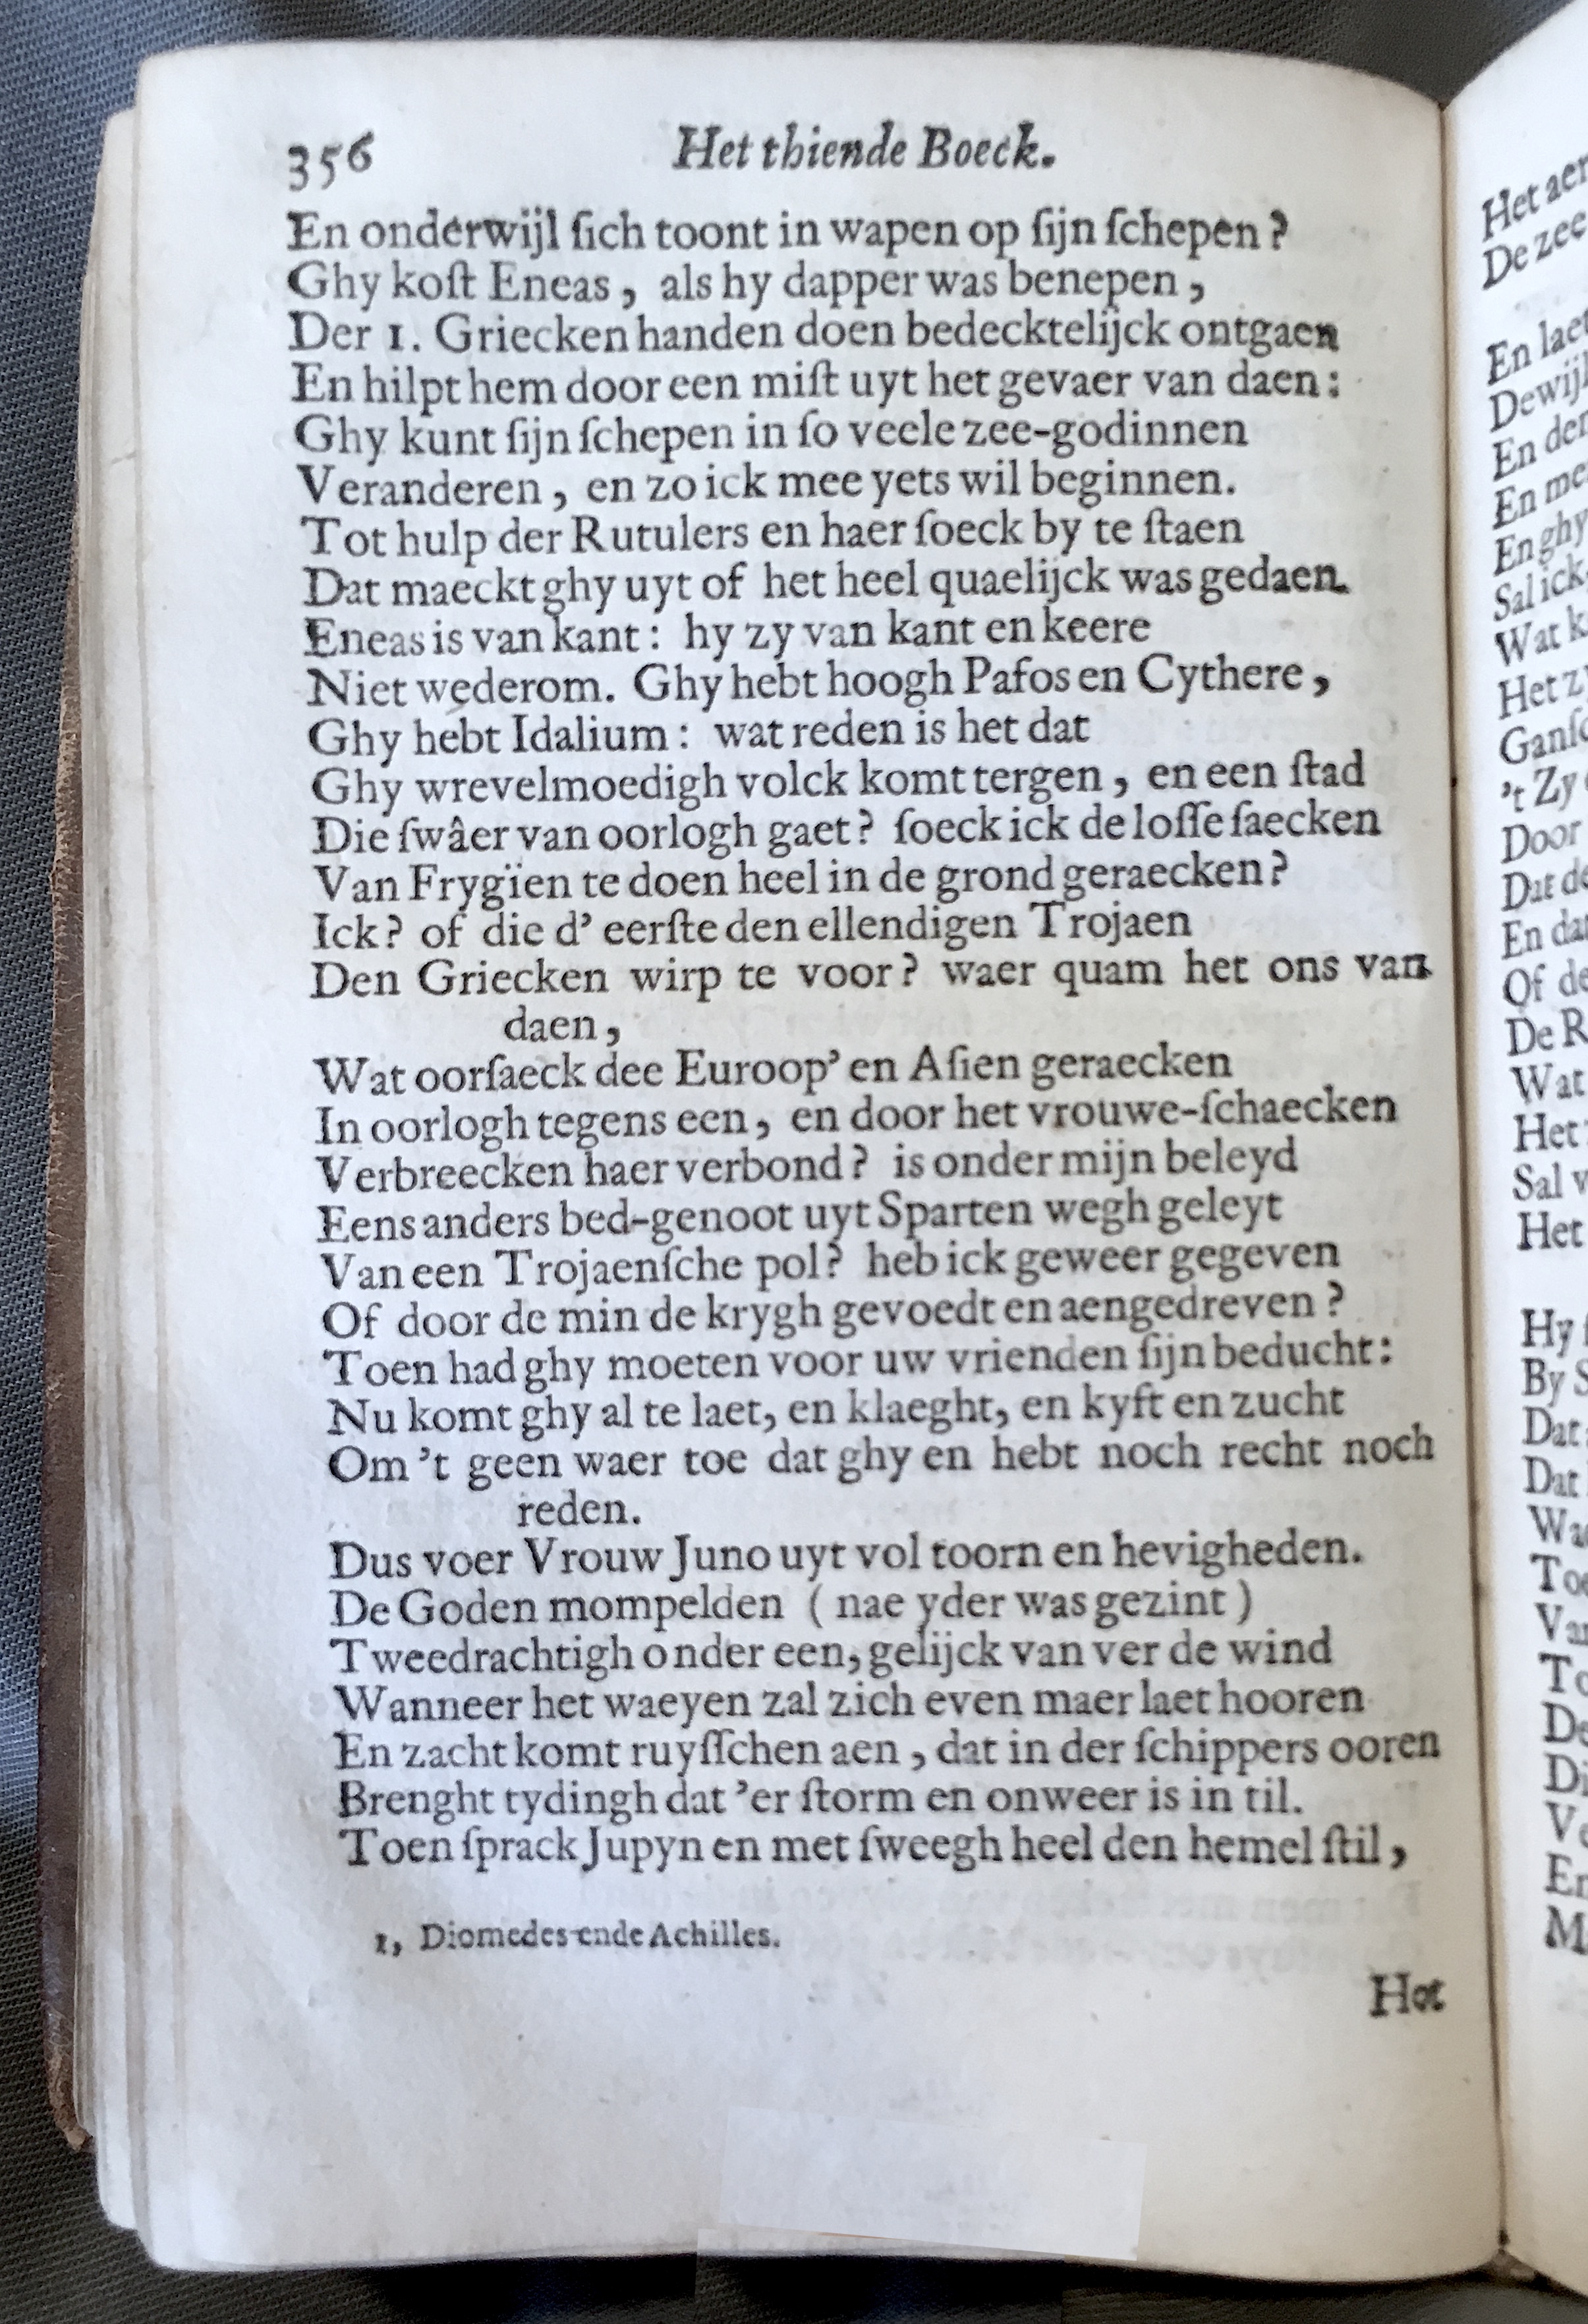 356 Het thiende Boeck.
En onderwijl ſich toont in wapen op ſijn ſchepen?
Ghy koſt Eneas, als hy dapper was benepen,
Der 1. Griecken handen doen bedecktelijck ontgaen
En hilpt hem door een miſt uyt het gevaer van daen:
Ghy kunt ſijn ſchepen in ſo veele zee-godinnen
Veranderen, en zo ick mee yets wil beginnen.
Tot hulp der Rutulers en haer ſoeck by te ſtaen
Dat maeckt ghy uyt of het heel quaelijck was gedaen.
Eneas is van kant: hy zy van kant en keere
Niet wederom. Ghy hebt hoogh Pafos en Cythere,
Ghy hebt Idalium: wat reden is het dat
Ghy wrevelmoedigh volck komt tergen, en een ſtad
Die ſwâer van oorlogh gaet? ſoeck ick de loſſe ſaecken
Van Frygïen te doen heel in de grond geraecken?
Ick? of die d' eerſte den ellendigen Trojaen
Den Griecken wirp te voor? waer quam het ons van
daen,
Wat oorſaeck dee Euroop' en Aſien geraecken
In oorlogh tegens een, en door het vrouwe-ſchaecken
Verbreecken haer verbond? is onder mijn beleyd
Eens anders bed-genoot uyt Sparten wegh geleyt
Van een Trojaenſche pol? heb ick geweer gegeven
Of door de min de krygh gevoedt en aengedreven?
Toen had ghy moeten voor uw vrienden ſijn beducht:
Nu komt ghy al te laet, en klaeght, en kyft en zucht
Om 't geen waer toe dat ghy en hebt noch recht noch
reden.
Dus voer Vrouw Juno uyt vol toorn en hevigheden.
De Goden mompelden ( nae yder was gezint )
Tweedrachtigh onder een, gelijck van ver de wind
Wanneer het waeyen zal zich even maer laet hooren
En zacht komt ruyſſchen aen, dat in der ſchippers ooren
Brenght tydingh dat 'er ſtorm en onweer is in til.
Toen ſprack Jupyn en met ſweegh heel den hemel ſtil,
1, Diomedes ende Achilles.
Het
Het
De zee
En
Dewijl
En
En
En ghy
Sal ick
Wat
Het
't Zy
Door
Dat
En
Of
De
Wat
Het
Sal
Het
Hy
By
Dat
Dat